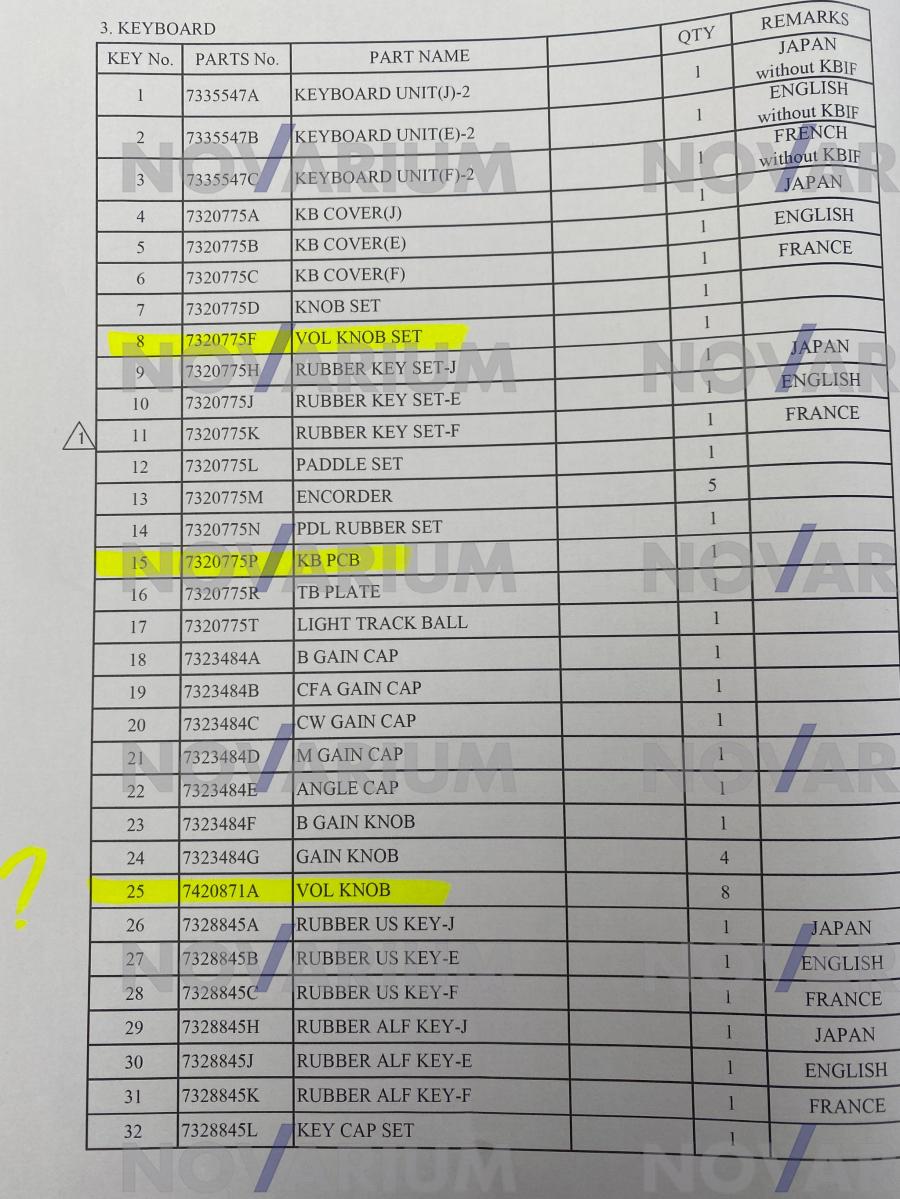 3. KEYBOARD
KEY No. PARTS No. PART NAME QTY REMARKS
1 7335547A KEYBOARD UNIT(J)-2 1 JAPAN
without KBIF
2 7335547B KEYBOARD UNIT(E)-2 1 ENGLISH
without KBIF
3 7335547C KEYBOARD UNIT(F)-2 1 FRENCH
without KBIF
NOVARIUM NOVAR
4 7320775A KB COVER(J) 1 JAPAN
5 7320775B KB COVER(E) 1 ENGLISH
6 7320775C KB COVER(F) 1 FRANCE
7 7320775D KNOB SET 1
8 7320775F VOL KNOB SET 1
NOVARIUM NOVAR
9 7320775H RUBBER KEY SET-J 1 JAPAN
10 7320775J RUBBER KEY SET-E 1 ENGLISH
1 11 7320775K RUBBER KEY SET-F 1 FRANCE
12 7320775L PADDLE SET 1
13 7320775M ENCORDER 5
14 7320775N PDL RUBBER SET 1
15 7320775P KB PCB 1
NOVARIUM NOVAR
16 7320775R TB PLATE 1
17 7320775T LIGHT TRACK BALL 1
18 7323484A B GAIN CAP 1
19 7323484B CFA GAIN CAP 1
20 7323484C CW GAIN CAP 1
21 7323484D M GAIN CAP 1
NOVARIUM NOVAR
22 7323484E ANGLE CAP 1
23 7323484F B GAIN KNOB 1
24 7323484G GAIN KNOB 4
?
25 7420871A VOL KNOB 8
26 7328845A RUBBER US KEY-J 1 JAPAN
27 7328845B RUBBER US KEY-E 1 ENGLISH
NOVARIUM NOVAR
28 7328845C RUBBER US KEY-F 1 FRANCE
29 7328845H RUBBER ALF KEY-J 1 JAPAN
30 7328845J RUBBER ALF KEY-E 1 ENGLISH
31 7328845K RUBBER ALF KEY-F 1 FRANCE
32 7328845L KEY CAP SET 1
NOVARIUM NOVAR